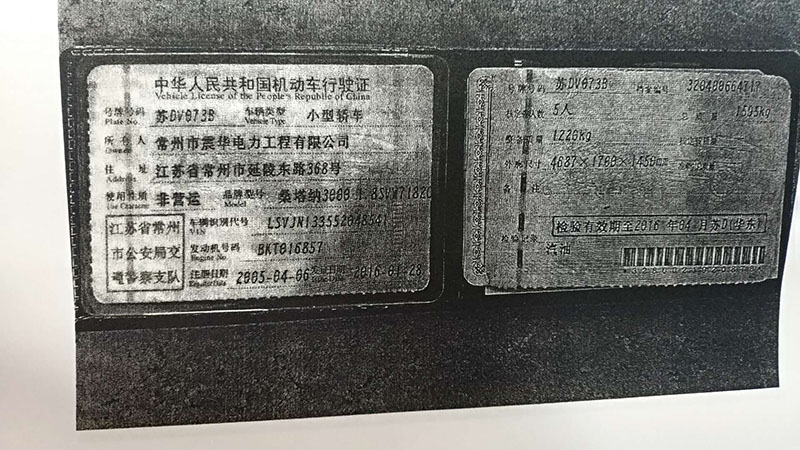 中华人民共和国机动车行驶证
Vehicle License of the People's Republic of China
号牌号码 苏DV073B 车辆类型 小型轿车
Plate No. Vehicle Type
所有人 常州市震华电力工程有限公司
Owner
住址 江苏省常州市延陵东路368号
Address
使用性质 非营运 品牌型号 桑塔纳3000 1.8SVW71820
Use Character Model
江苏省常州
市公安局交
通警察支队
车辆识别代号 LSVJN133552048541
VIN
发动机号码 BKT016857
Engine No.
注册日期 2005-04-06 发证日期 2016-01-28
Register Date
号牌号码 苏DV073B 档案编号
5人 1595kg
整备质量 1220kg
外廓尺寸 4687×1700×1450mm
备注
检验有效期至2016年04月苏D(华东)
检验记录
汽油